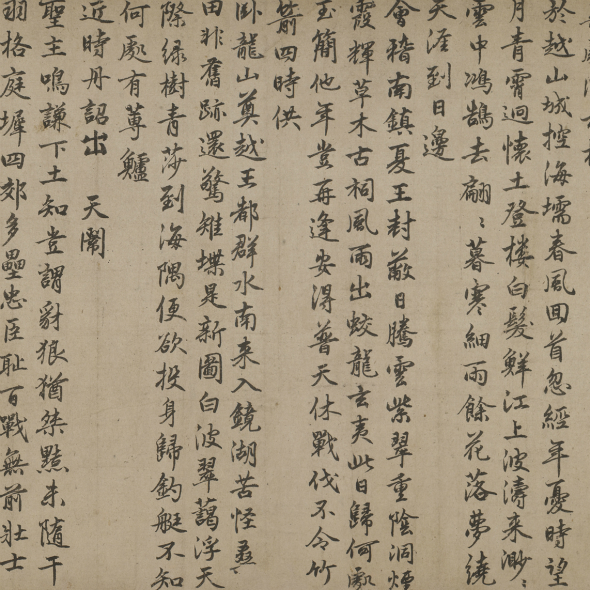 於越山城控海壖春風回首忽經年憂時望
月青霄迥懷土登楼白髮鮮江上波濤来渺〻
雲中鴻鵠去翩〻暮寒細雨餘花落夢繞
天涯到日邊
會稽南鎮夏王封蔽日騰雲紫翠重陰洞煙
霞輝草木古祠風雨出蛟龍玄夷此日歸何處
玉簡他年豈再逢安得普天休戰伐不令竹
箭四時供
卧龍山奠越王都群水南来入鏡湖苦怪
田非舊跡還驚雉堞是新圖白波翠藹浮天
際綠樹青莎到海隅便欲投身歸釣艇不知
何處有蓴鱸
近時丹詔出 天閽
聖主鳴謙下土知豈謂豺狼猶桀黠未随干
羽格庭墀四郊多壘忠臣耻百戰無前壯士